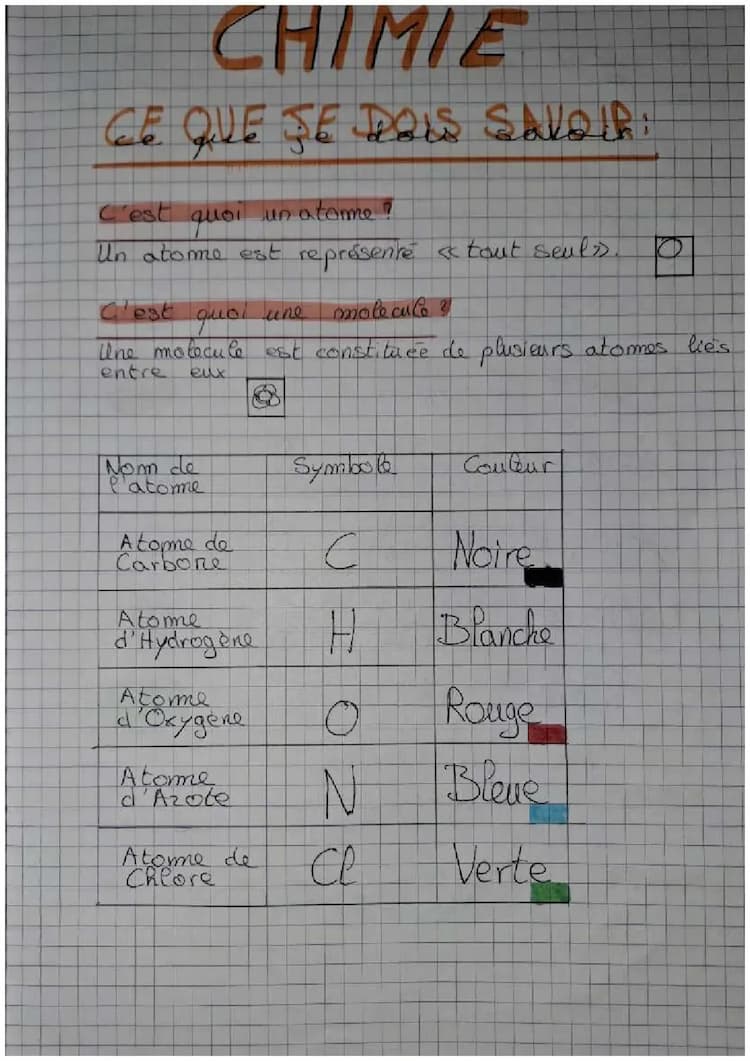 CHIMIE
CE QUE JE DOIS SAVOIR:
C'est quoi un atome ?
Un atome est représenté « tout seul ».
C'est quoi une molécule ?
Une molécule est constituée de plusieurs atomes liés
entre eux
Nom de l'atome Symbole Couleur
Atome de Carbone C Noire
Atome d'Hydrogène H Blanche
Atome d'Oxygène O Rouge
Atome d'Azote N Bleue
Atome de Chlore Cl Verte